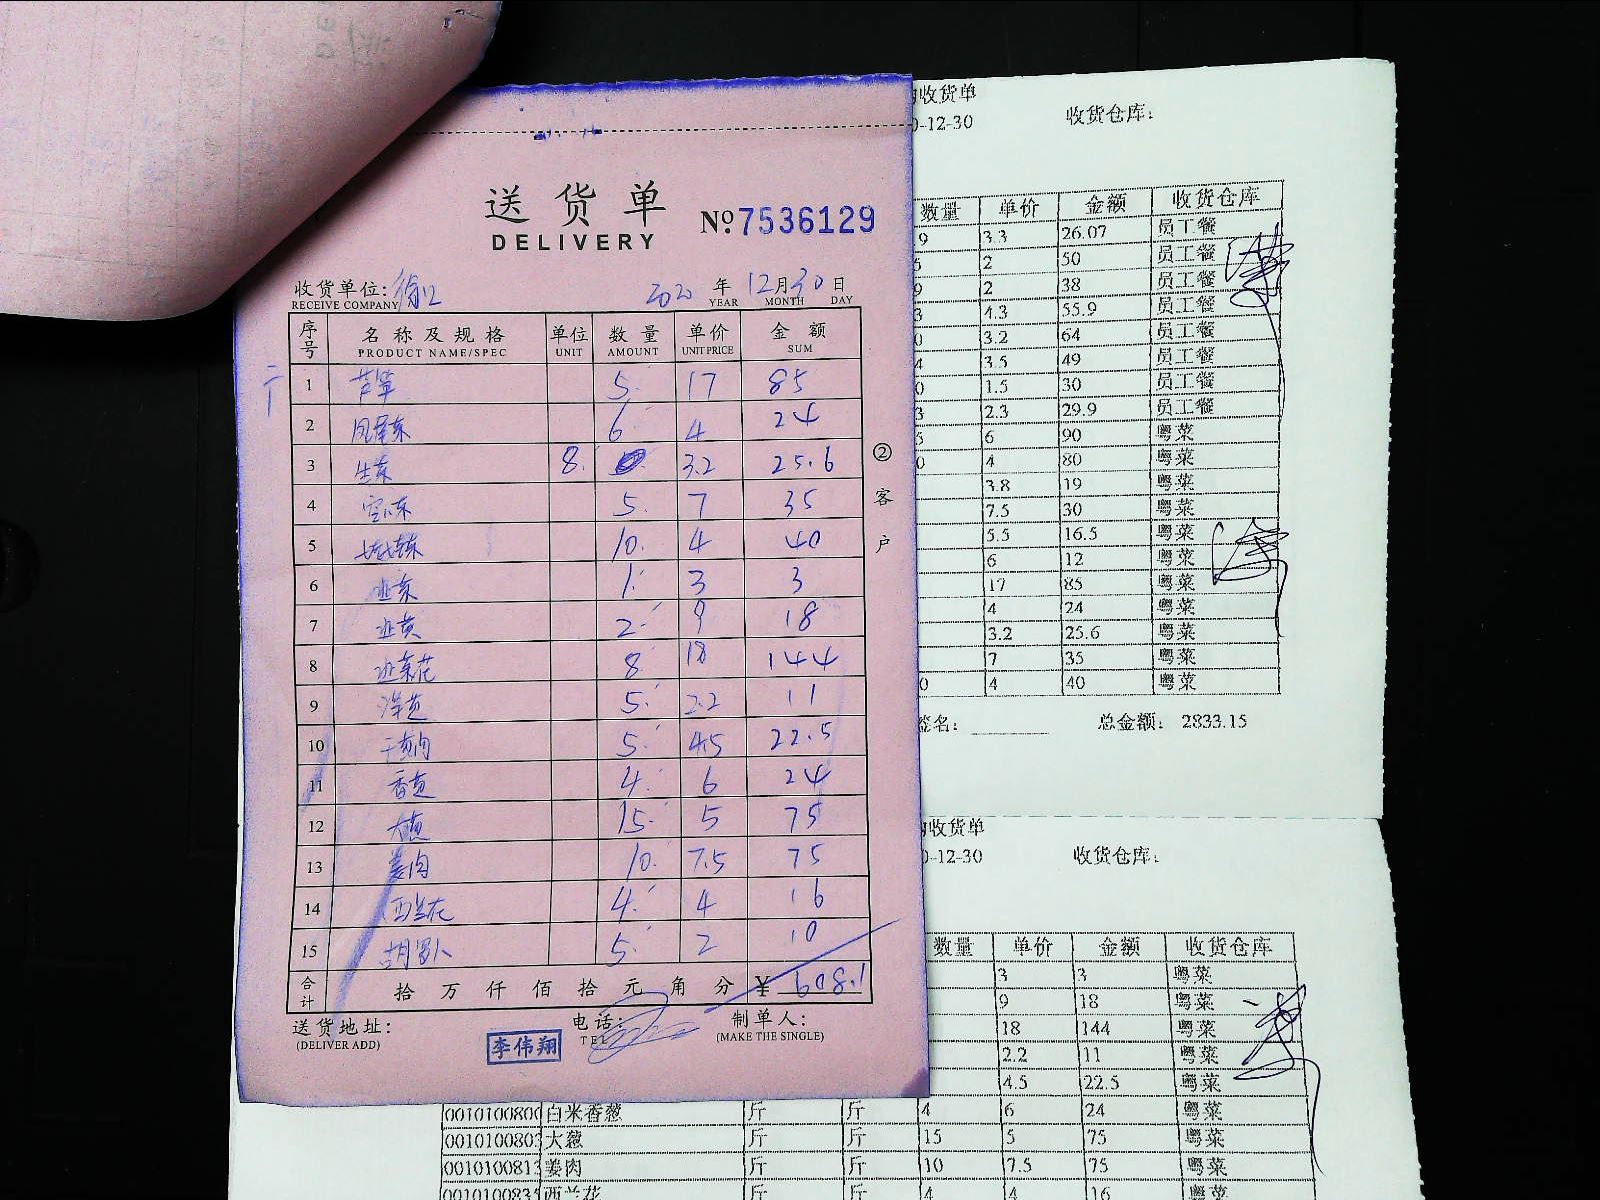 送货单
DELIVERY
№ 7536129
收货单位:
RECEIVE COMPANY
2020 年 12月30日
YEAR MONTH DAY
序号 名称及规格 单位 数量 单价 金额
PRODUCT NAME/SPEC UNIT AMOUNT UNIT PRICE SUM
1 芦笋 5 17 85
2 6 4 24
3 生菜 8 3.2 25.6
4 空心菜 5 7 35
5 10 4 40
6 韭菜 1 3 3
7 韭黄 2 9 18
8 韭菜花 8 18 144
9 洋芫 5 2.2 11
10 5 4.5 22.5
11 香葱 4 6 24
12 大葱 15 5 75
13 姜肉 10 7.5 75
14 西兰花 4 4 16
15 胡萝卜 5 2 10
合计 拾 万 仟 佰 拾 元 角 分 ¥ 608.1
送货地址: 电话: 制单人:
(DELIVER ADD) TEL (MAKE THE SINGLE)
李伟翔
②客户
收货单
0-12-30 收货仓库:
数量 单价 金额 收货仓库
9 3.3 26.07 员工餐
5 2 50 员工餐
9 2 38 员工餐
3 4.3 55.9 员工餐
0 3.2 64 员工餐
4 3.5 49 员工餐
0 1.5 30 员工餐
3 2.3 29.9 员工餐
5 6 90 粤菜
0 4 80 粤菜
3.8 19 粤菜
7.5 30 粤菜
5.5 16.5 粤菜
6 12 粤菜
17 85 粤菜
4 24 粤菜
3.2 25.6 粤菜
7 35 粤菜
0 4 40 粤菜
签名: 总金额: 2833.15
收货单
0-12-30 收货仓库:
数量 单价 金额 收货仓库
3 3 粤菜
9 18 粤菜
18 144 粤菜
2.2 11 粤菜
4.5 22.5 粤菜
0010100800 白米香葱 斤 斤 4 6 24 粤菜
0010100803 大葱 斤 斤 15 5 75 粤菜
0010100813 姜肉 斤 斤 10 7.5 75 粤菜
001010083 西兰花 斤 斤 4 4 16 粤菜